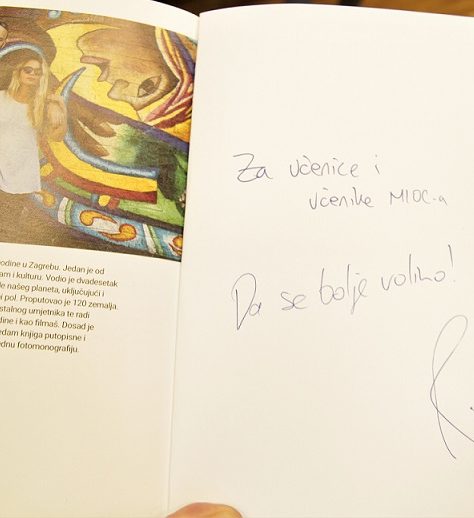 odine u Zagrebu. Jedan je od
am i kulturu. Vodio je dvadesetak
e našeg planeta, uključujući i
i pol. Proputovao je 120 zemalja.
stalnog umjetnika te radi
dine i kao filmaš. Dosad je
edam knjiga putopisne i
ednu fotomonografiju.
Za učenice i
učenike MIOC-a
Da se bolje volimo!